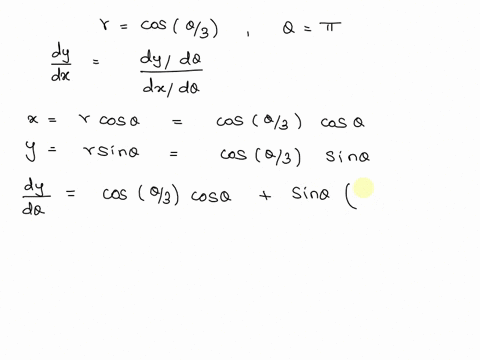 r = cos(θ/3) , θ = π
dy/dx = (dy/dθ)/(dx/dθ)
x = r cosθ = cos(θ/3) cosθ
y = r sinθ = cos(θ/3) sinθ
dy/dθ = cos(θ/3) cosθ + sinθ (